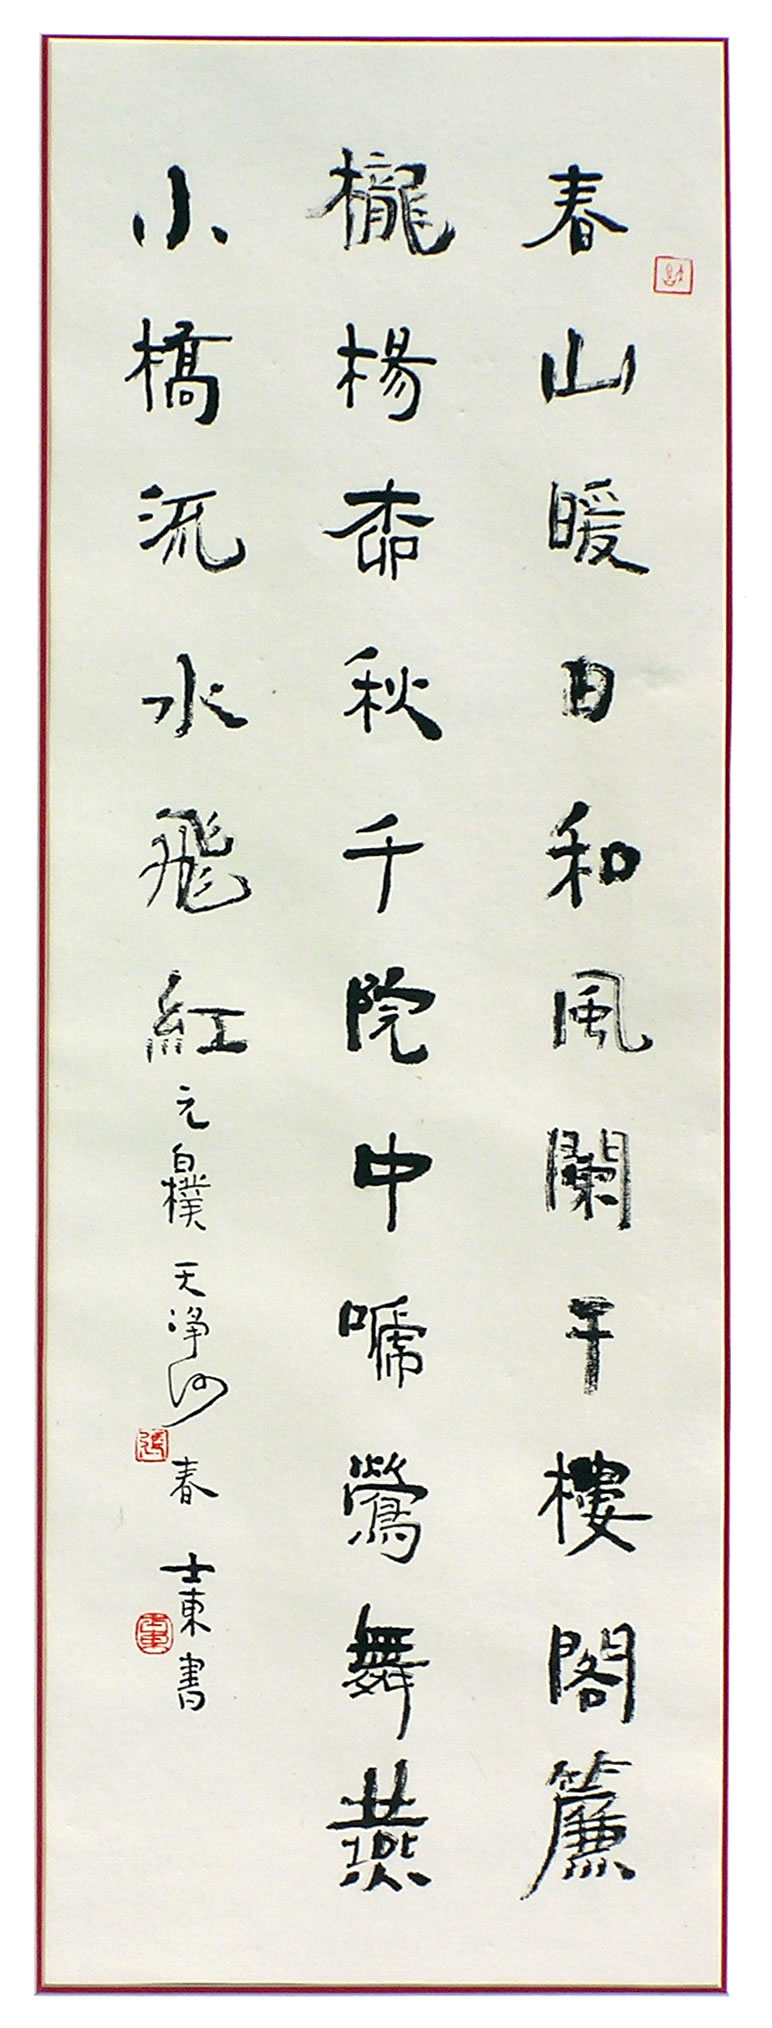 春山暖日和風闌干樓閣簾
櫳楊柳秋千院中啼鶯舞燕
小橋流水飛紅元白樸天淨沙春士東書
張
士東